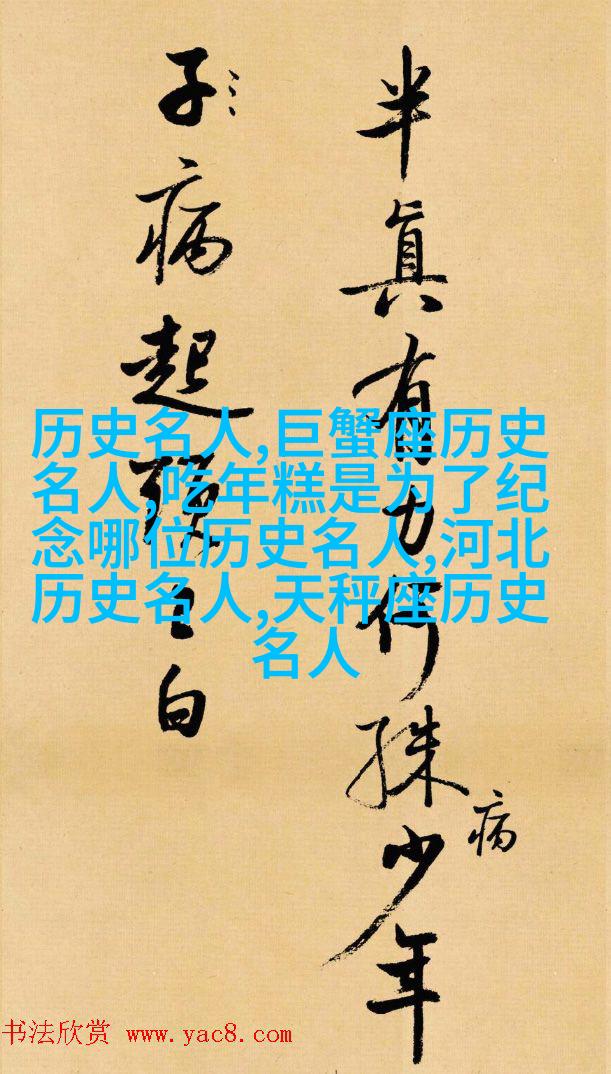 半真有力何殊病少年
子病起頭已白
历史名人,巨蟹座历史
名人,吃年糕是为了纪
念哪位历史名人,河北
历史名人,天秤座历史
名人
书法欣赏 www.yac8.com